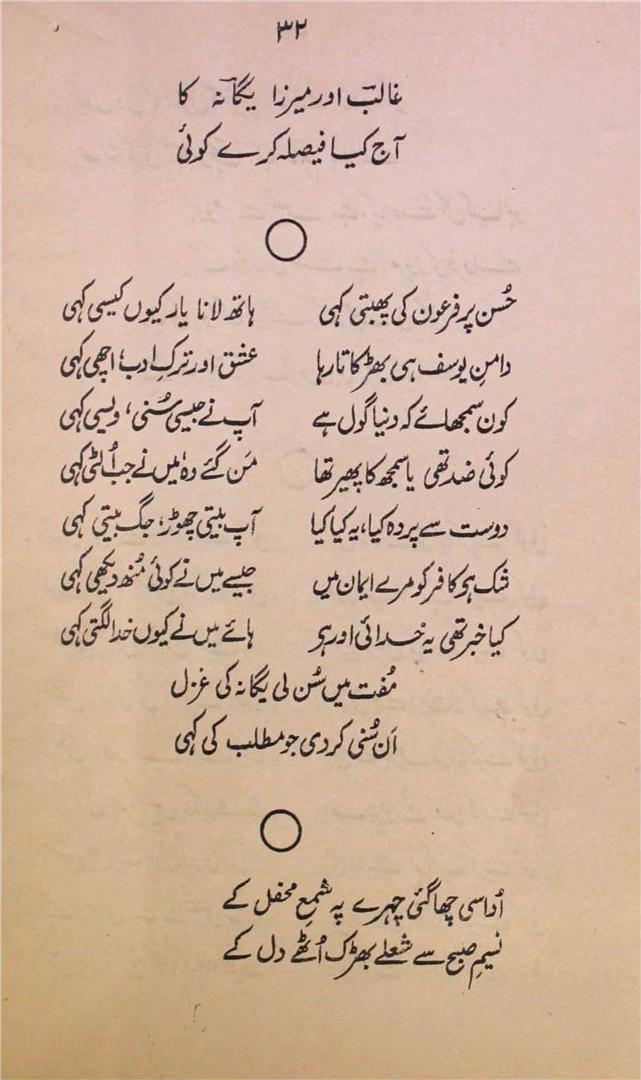 ۳۲
غالبؔ اور میرزا یگانہؔ کا
آج کیا فیصلہ کرے کوئی
حُسن پر فرعون کی پھبتی کہی ہاتھ لانا یار کیوں کیسی کہی
دامنِ یوسف ہی بھڑکاتا رہا عشق اور ترکِ ادب، اچھی کہی
کون سمجھائے کہ دنیا گول ہے آپ نے جیسی سُنی، ویسی کہی
کوئی ضد تھی یا سمجھ کا پھیر تھا مَن گئے وہ، میں نے جب اُلٹی کہی
دوست سے پردہ کیا، یہ کیا کیا آپ بیتی چھوڑ، جگ بیتی کہی
شک ہو کافر کو مرے ایمان میں جیسے میں نے کوئی مُنھ دیکھی کہی
کیا خبر تھی یہ خدائی اور ہو ہائے میں نے کیوں خدا لگتی کہی
مُفت میں سُن لی یگانہ کی غزل
اَن سُنی کردی جو مطلب کی کہی
اُداسی چھا گئی چہرے پہ شمعِ محفل کے
نسیمِ صبح سے شعلے بھڑک اُٹھے دل کے